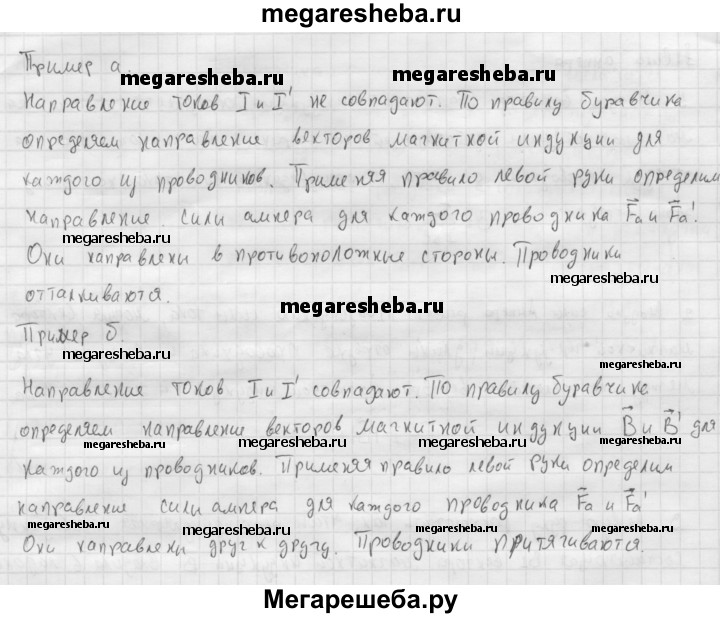 megaresheba.ru
Пример а.
megaresheba.ru
megaresheba.ru
Направление токов I и I' не совпадают. По правилу буравчика
определяем направление векторов магнитной индукции для
каждого из проводников. Применяя правило левой руки определим
направление сили ампера для каждого проводника Fа и Fа'.
megaresheba.ru
megaresheba.ru
Они направлены в противоположные стороны. Проводники
отталкиваются.
megaresheba.ru
Пример б.
megaresheba.ru
megaresheba.ru
Направление токов I и I' совпадают. По правилу буравчика
определяем направление векторов магнитной индукции B и B' для
megaresheba.ru megaresheba.ru megaresheba.ru megaresheba.ru
каждого из проводников. Применяя правило левой руки определим
направление сили ампера для каждого проводника Fа и Fа'
megaresheba.ru megaresheba.ru megaresheba.ru megaresheba.ru
Они направлены друг к другу. Проводники притягиваются.
Мегарешеба.ру